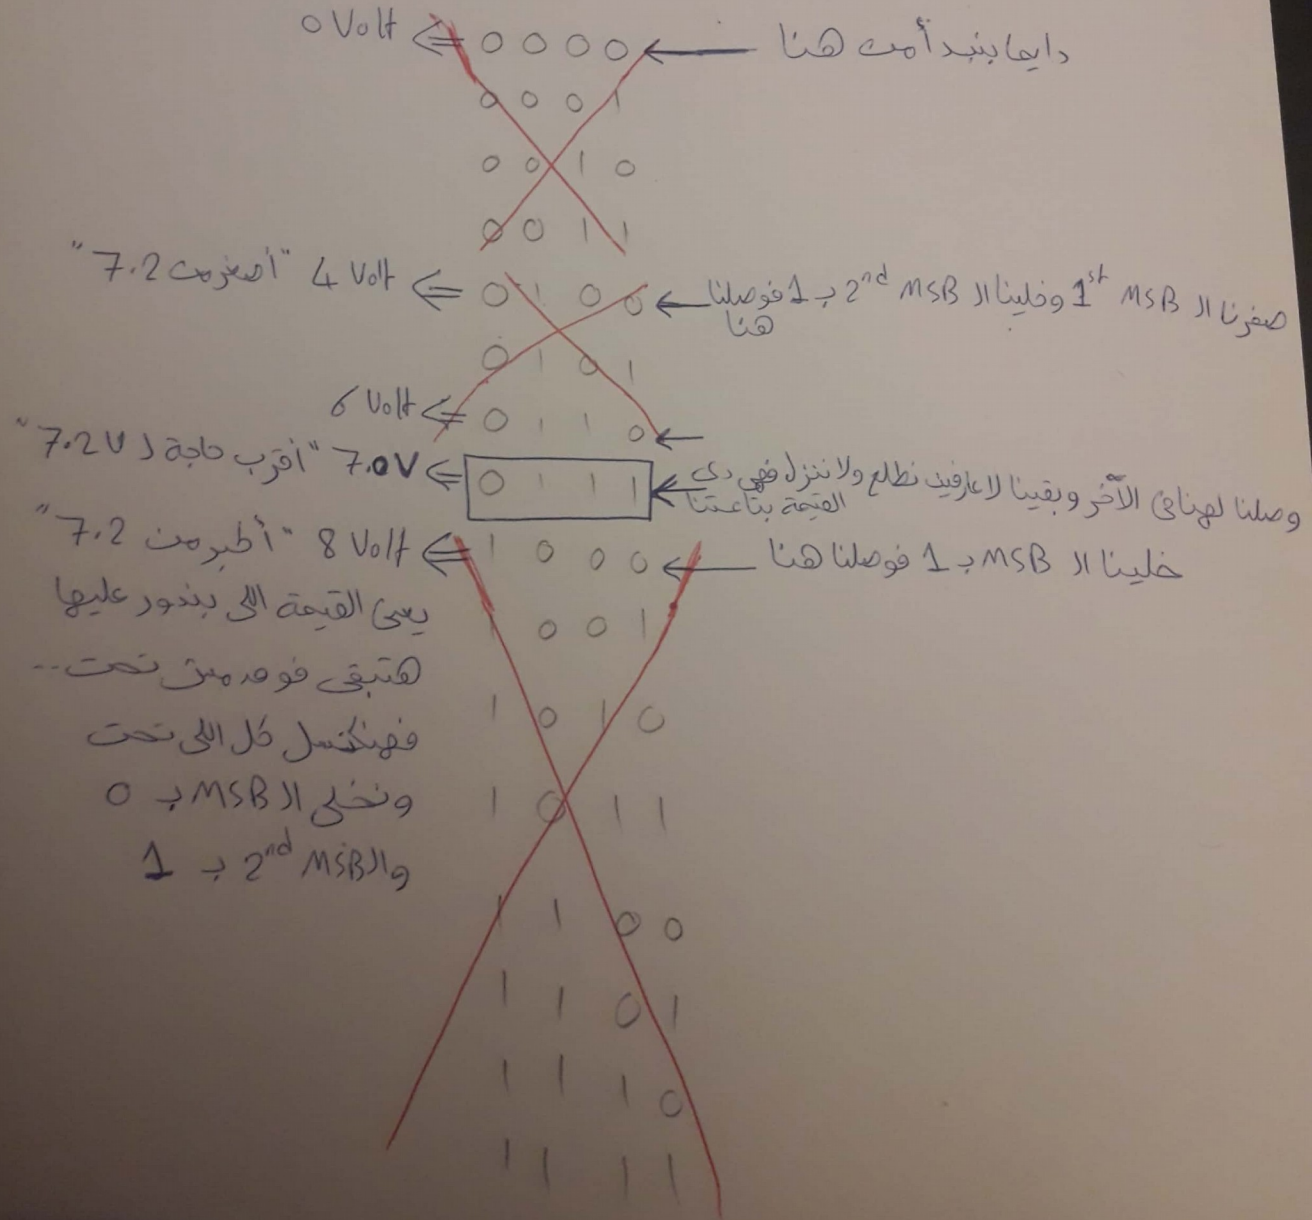 0 Volt ⇐ 0 0 0 0 ← دايما بنبدأ من هنا
0 0 0 1
0 0 1 0
0 0 1 1
"أصغر من 7.2" 4 Volt ⇐ 0 1 0 0 ← صفرنا ال 1st MSB وخلينا ال 2nd MSB ب 1 فوصلنا
هنا
0 1 0 1
6 Volt ⇐ 0 1 1 0 ←
"أقرب حاجة ل 7.2V" 7.0V ⇐ 0 1 1 1 ← وصلنا لهنا فى الآخر وبقينا لا عارفين نطلع ولا ننزل فهى دى
القيمة بتاعتنا
"أكبر من 7.2" 8 Volt ⇐ 1 0 0 0 ← خلينا ال MSB ب 1 فوصلنا هنا
يعنى القيمة اللى بندور عليها
1 0 0 1
هتبقى فوق مش تحت..
1 0 1 0
فهنكنسل كل اللى تحت
ونخلى ال MSB ب 0
1 0 1 1
وال 2nd MSB ب 1
1 1 0 0
1 1 0 1
1 1 1 0
1 1 1 1